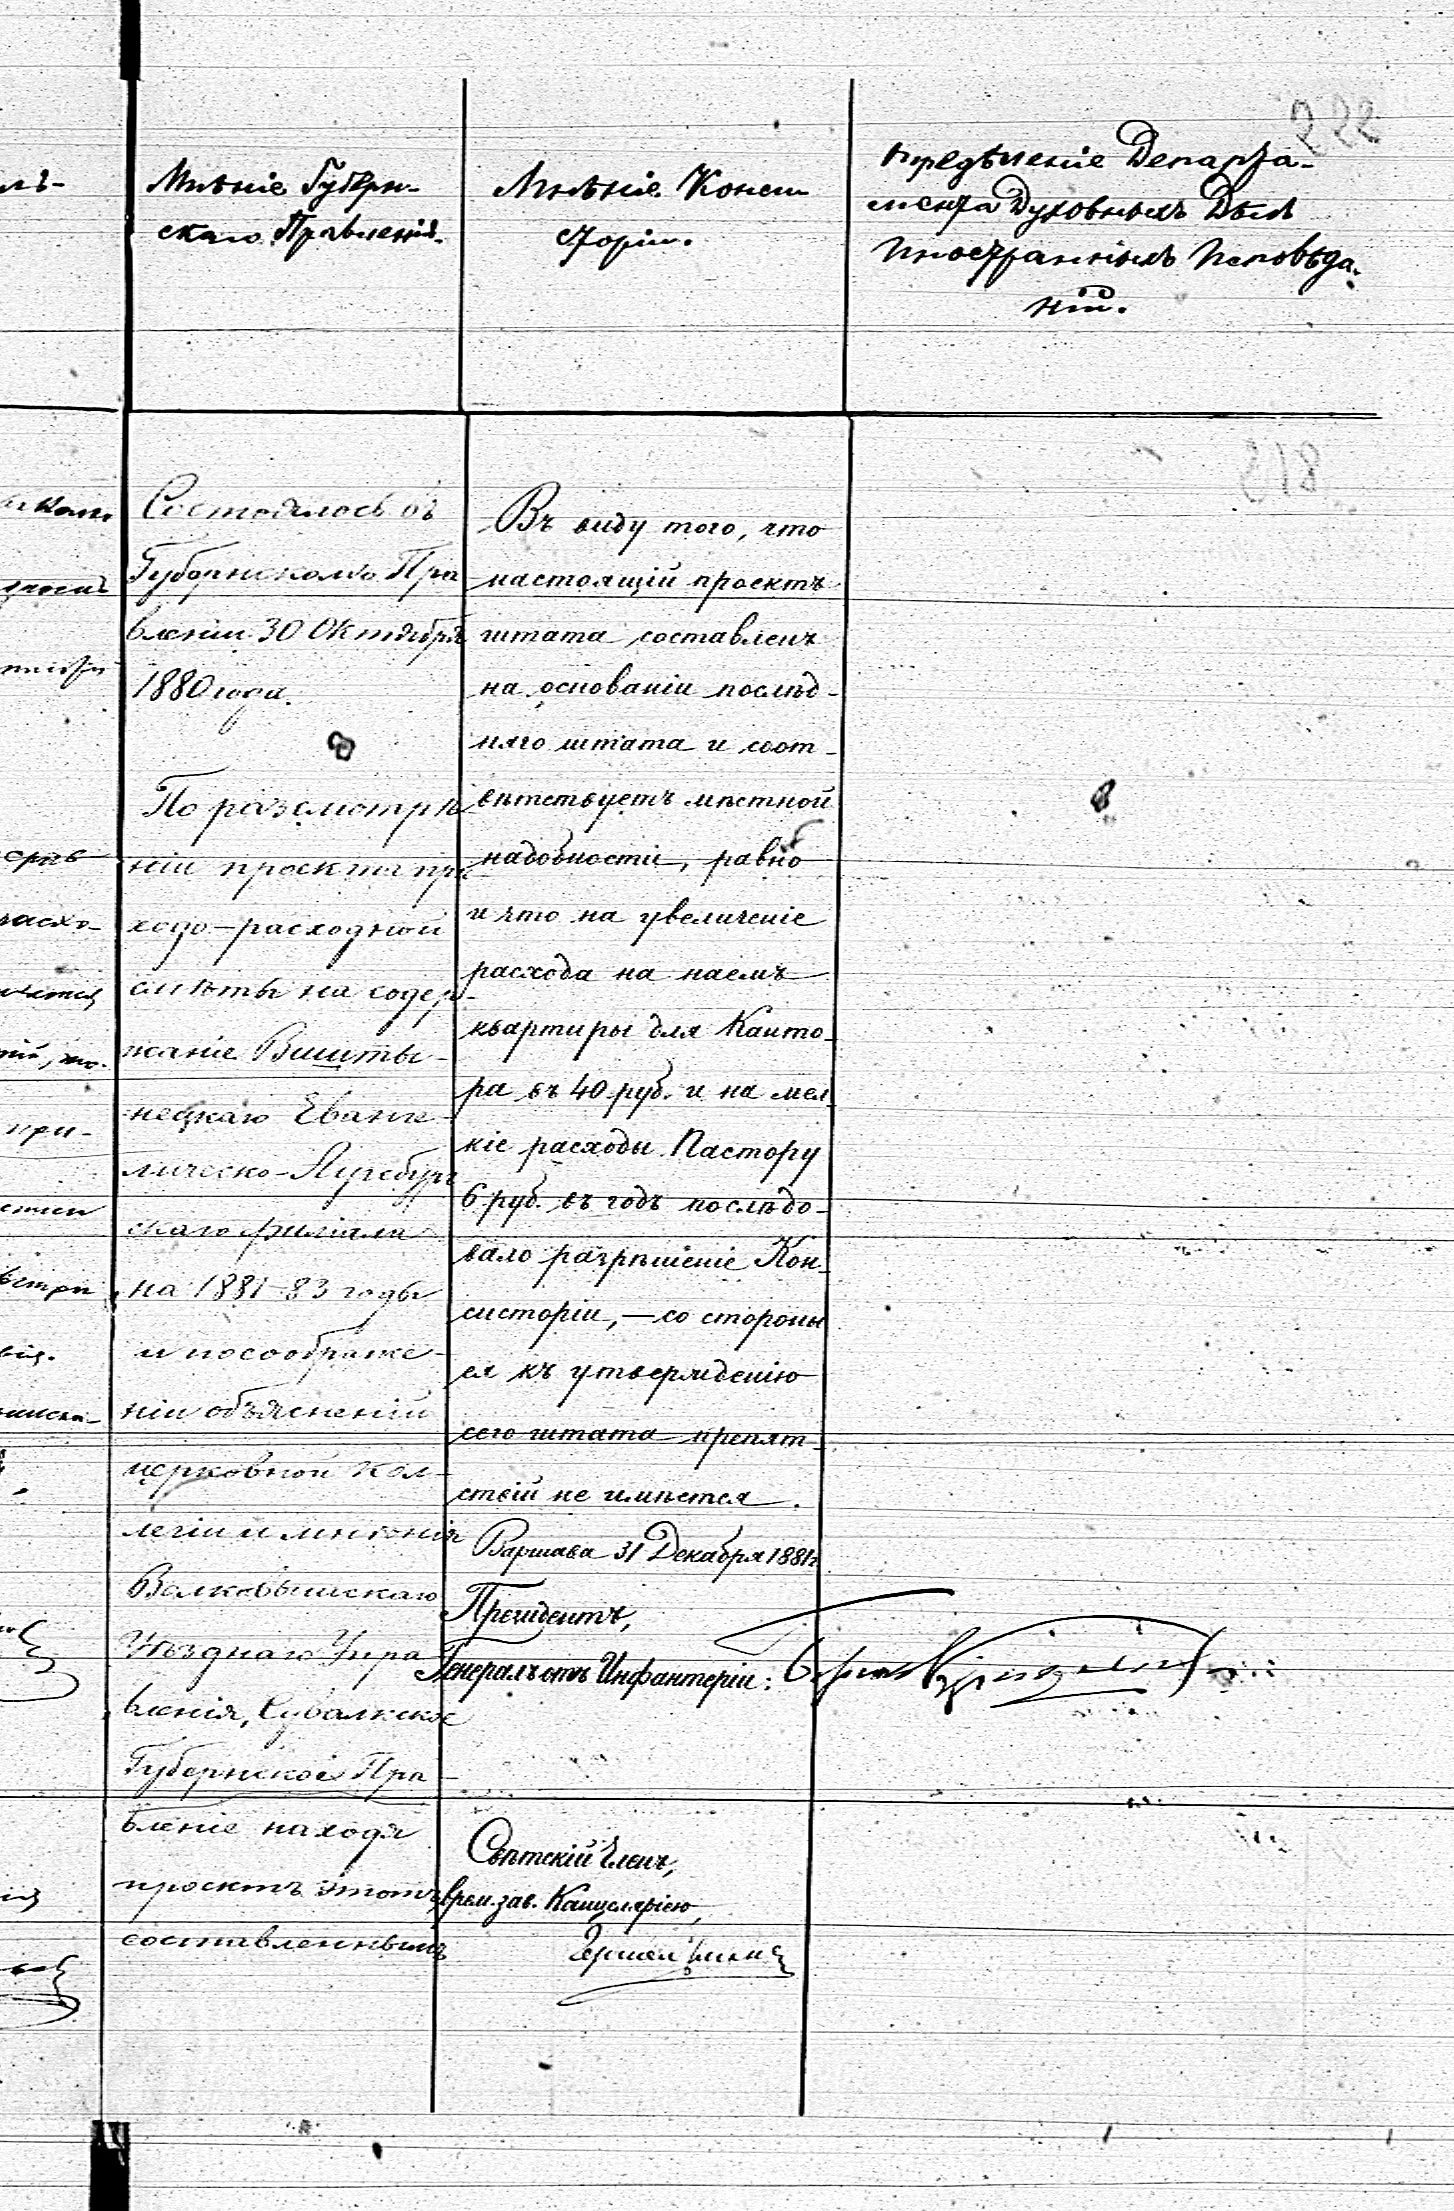 222
Мнѣніе Губерн-
скаго Правленія.
Мнѣніе Конси
сторіи.
предѣленіе Департа-
мента Духовныхъ Дѣлъ
Иностранныхъ Исповѣда-
ній.
318
Состоялось въ
Губернскомъ Пра
вленіи 30 Октября
1880 года.
По разсмотрѣ
ніи проекта при
ходо-расходной
смѣты на содер-
жаніе Вишты-
нецкаго Еванге-
лическо-Аугсбург
скаго филіала
на 1881-83 годы
и по соображе-
ніи объясненій
церковной кол-
легіи и мнѣнія
Волковышскаго
Уѣзднаго Упра
вленія, Сувалкское
Губернское Пра-
вленіе находя
проектъ этотъ
составленнымъ
Въ виду того, что
настоящій проектъ
штата составленъ
на основаніи послѣд-
няго штата и соот-
вѣтствуетъ мѣстной
надобности, равно
и что на увеличеніе
расхода на наемъ
квартиры для Канто-
ра въ 40 руб. и на мел-
кіе расходы Пастору
6 руб. въ годъ послѣдо-
вало разрѣшеніе Кон-
систоріи, — со стороны
ея къ утвержденію
сего штата препят-
ствій не имѣется.
Варшава 31 Декабря 1881 г.
Президентъ,
Генералъ отъ Инфантеріи:
Свѣтскій Членъ,
врем. зав. Канцеляріею,